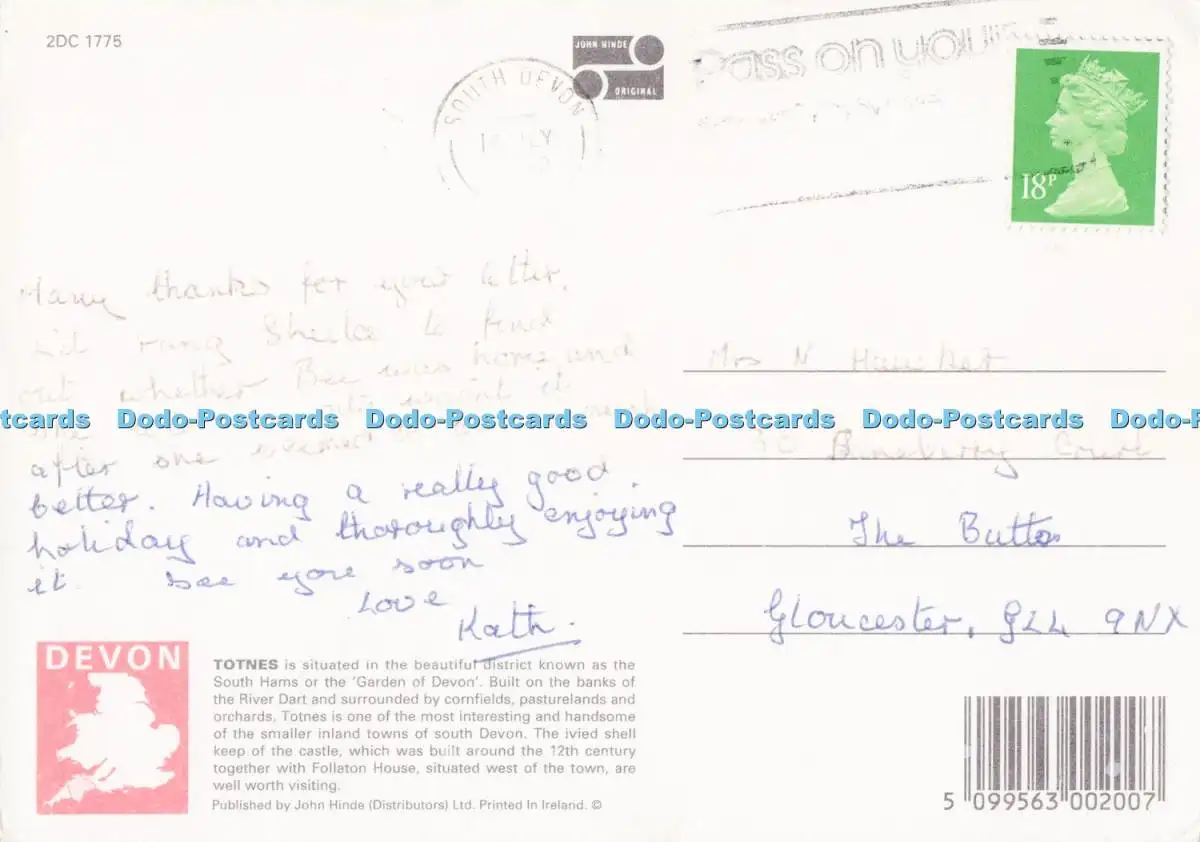 2DC 1775
JOHN HINDE
ORIGINAL
SOUTH DEVON
Pass on your
18P
Many thanks for your letter.
rang Sheila to find
out whether Bee was home and
after one
better. Having a really good
holiday and thoroughly enjoying
it. See you soon
Love
Kath.
Mrs N
Court
The
Gloucester, GL4 9NX
Dodo-Postcards Dodo-Postcards Dodo-Postcards Dodo-Postcards
DEVON
TOTNES is situated in the beautiful district known as the
South Hams or the 'Garden of Devon'. Built on the banks of
the River Dart and surrounded by cornfields, pasturelands and
orchards, Totnes is one of the most interesting and handsome
of the smaller inland towns of south Devon. The ivied shell
keep of the castle, which was built around the 12th century
together with Follaton House, situated west of the town, are
well worth visiting.
Published by John Hinde (Distributors) Ltd. Printed In Ireland. ©
5 099563 002007